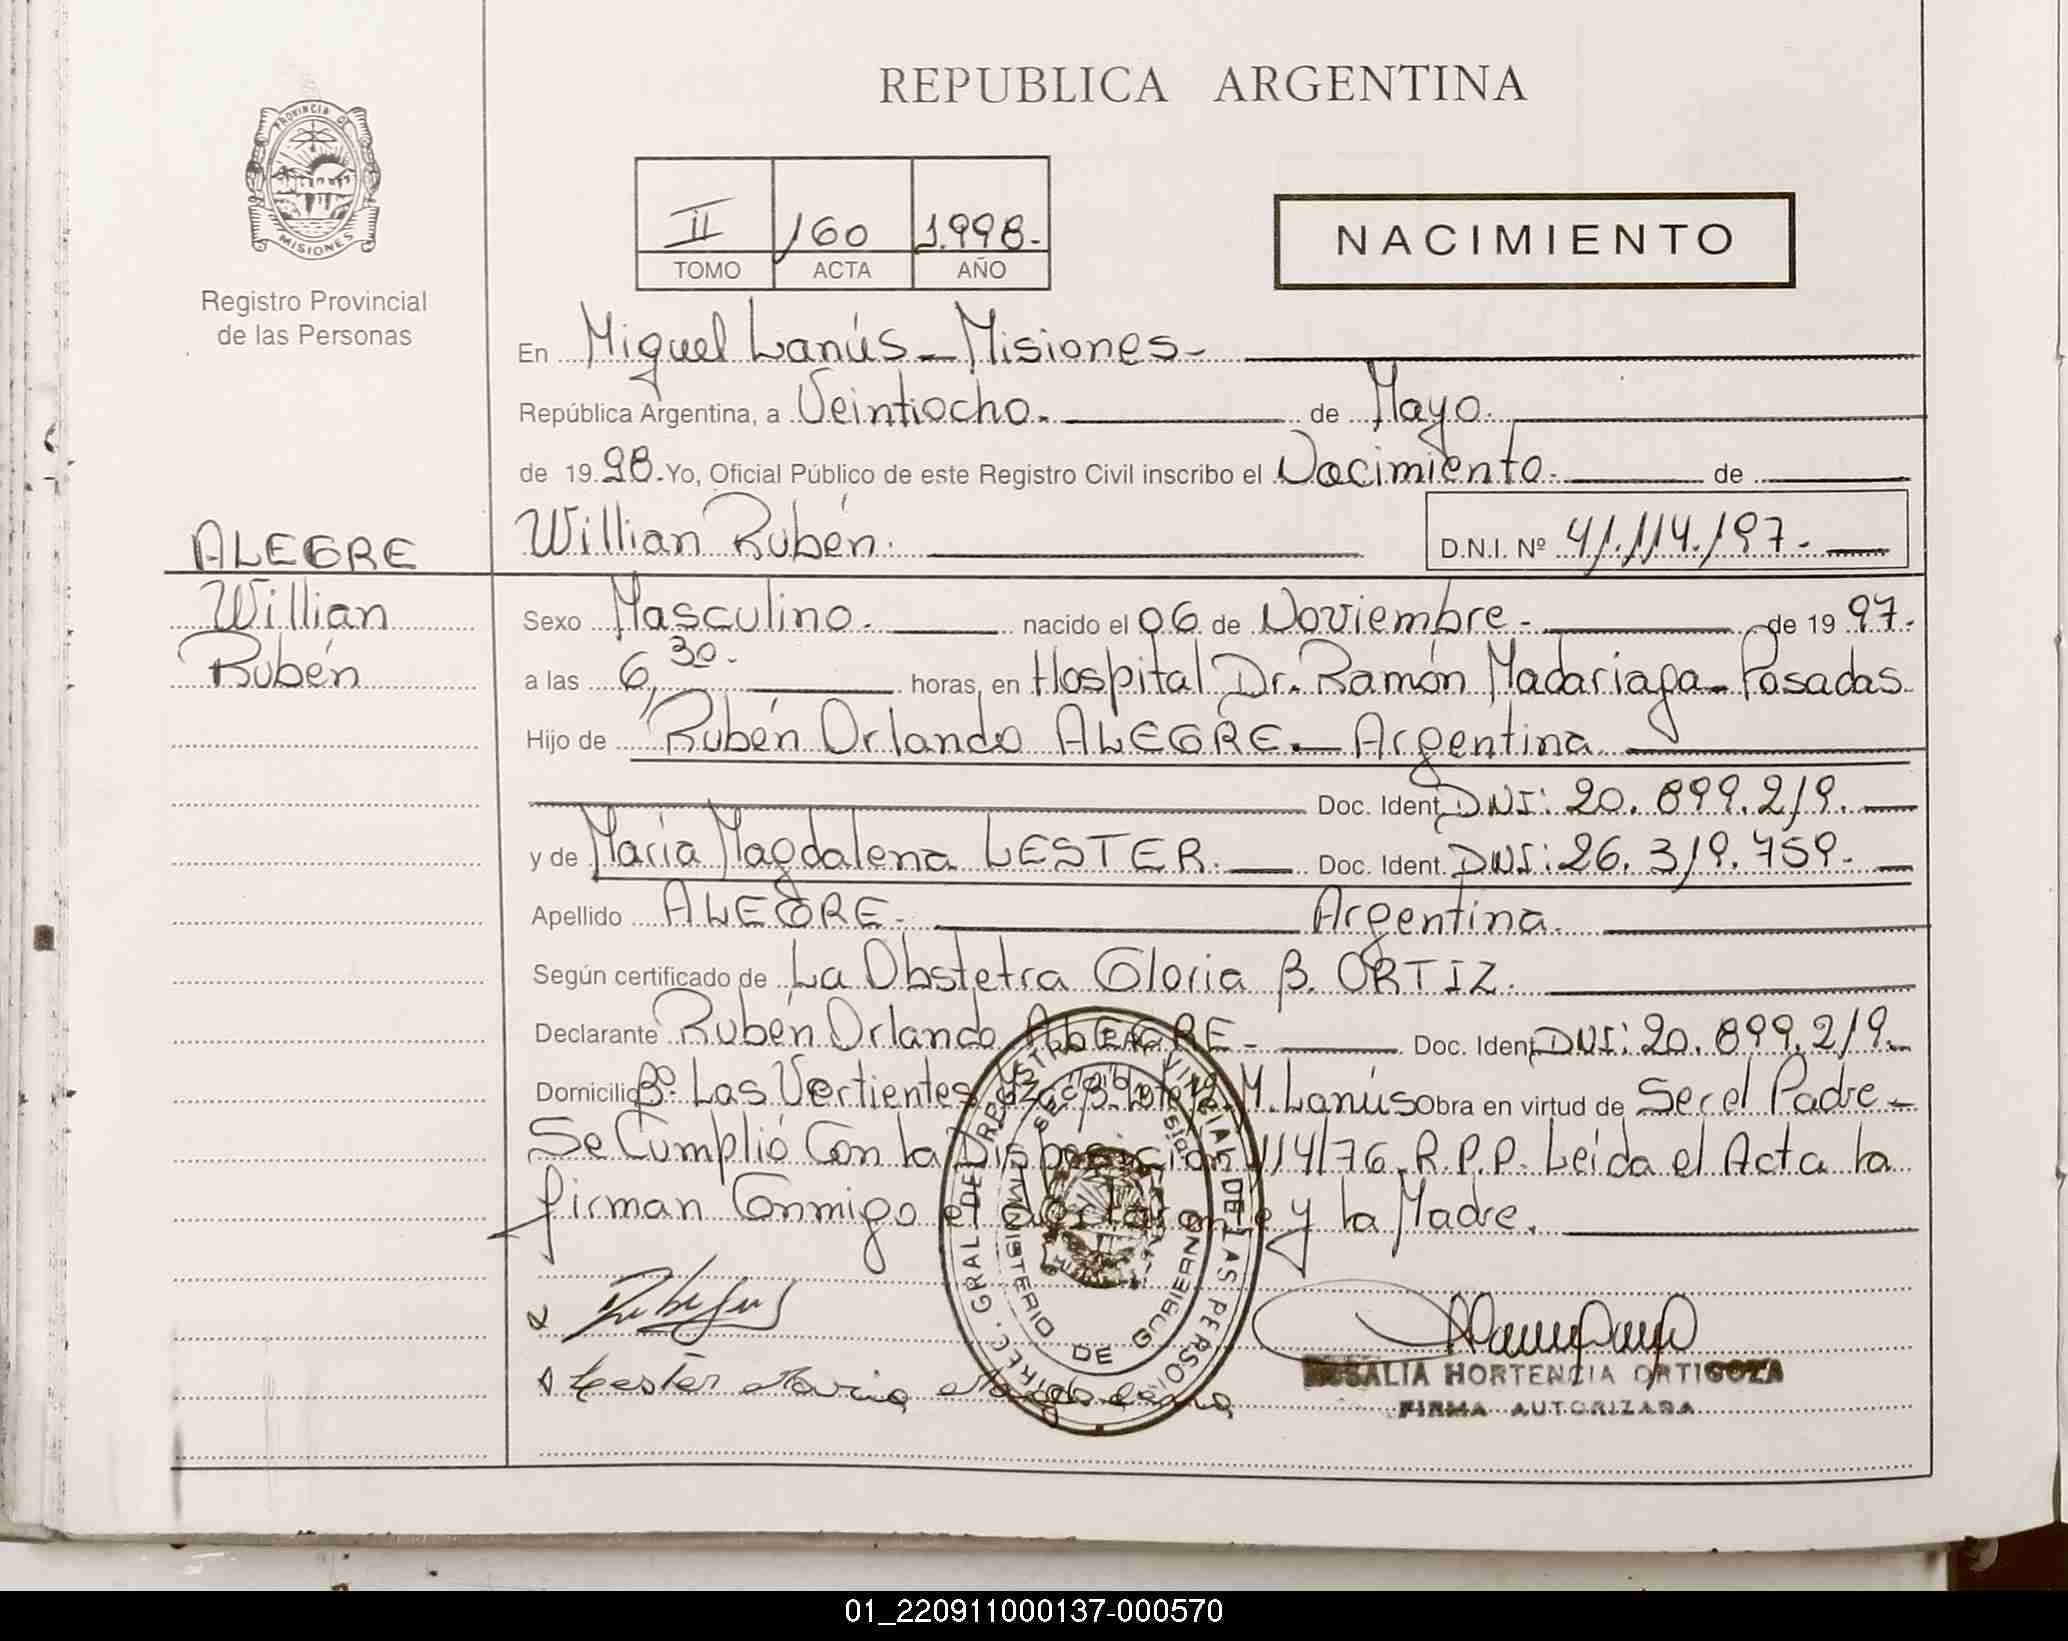 REPUBLICA ARGENTINA
PROVINCIA DE
MISIONES
Registro Provincial
de las Personas
II 160 1.998.-
TOMO ACTA AÑO
NACIMIENTO
En Miguel Lanús - Misiones -
República Argentina, a Veintiocho. de Mayo.
de 19 98.- Yo, Oficial Público de este Registro Civil inscribo el Nacimiento. de
Willian Rubén. D.N.I. Nº 41.114.197.-
ALEGRE
Willian
Rubén
Sexo Masculino. nacido el 06 de Noviembre - de 19 97.-
a las 6,30.- horas, en Hospital Dr. Ramón Madariaga - Posadas
Hijo de Rubén Orlando ALEGRE. - Argentina
Doc. Ident. DNI: 20.899.219.
y de María Magdalena LESTER. Doc. Ident. DNI: 26.319.759.-
Apellido ALEGRE. Argentina.
Según certificado de La Obstetra Gloria B. ORTIZ.
Declarante Rubén Orlando ALEGRE - Doc. Ident. DNI: 20.899.219.
Domicilio Bº. Las Vertientes M. Lanús Obra en virtud de Ser el Padre -
Se Cumplió Con la Disposición 114/76. R.P.P. Leída el Acta la
firman Conmigo el declarante y la Madre.
Lester Maria Magdalena
DIREC. GRAL. DEL REGISTRO PROVINCIAL DE LAS PERSONAS
MINISTERIO DE GOBIERNO
ROSALIA HORTENCIA ORTIGOZA
FIRMA AUTORIZADA
01_220911000137-000570